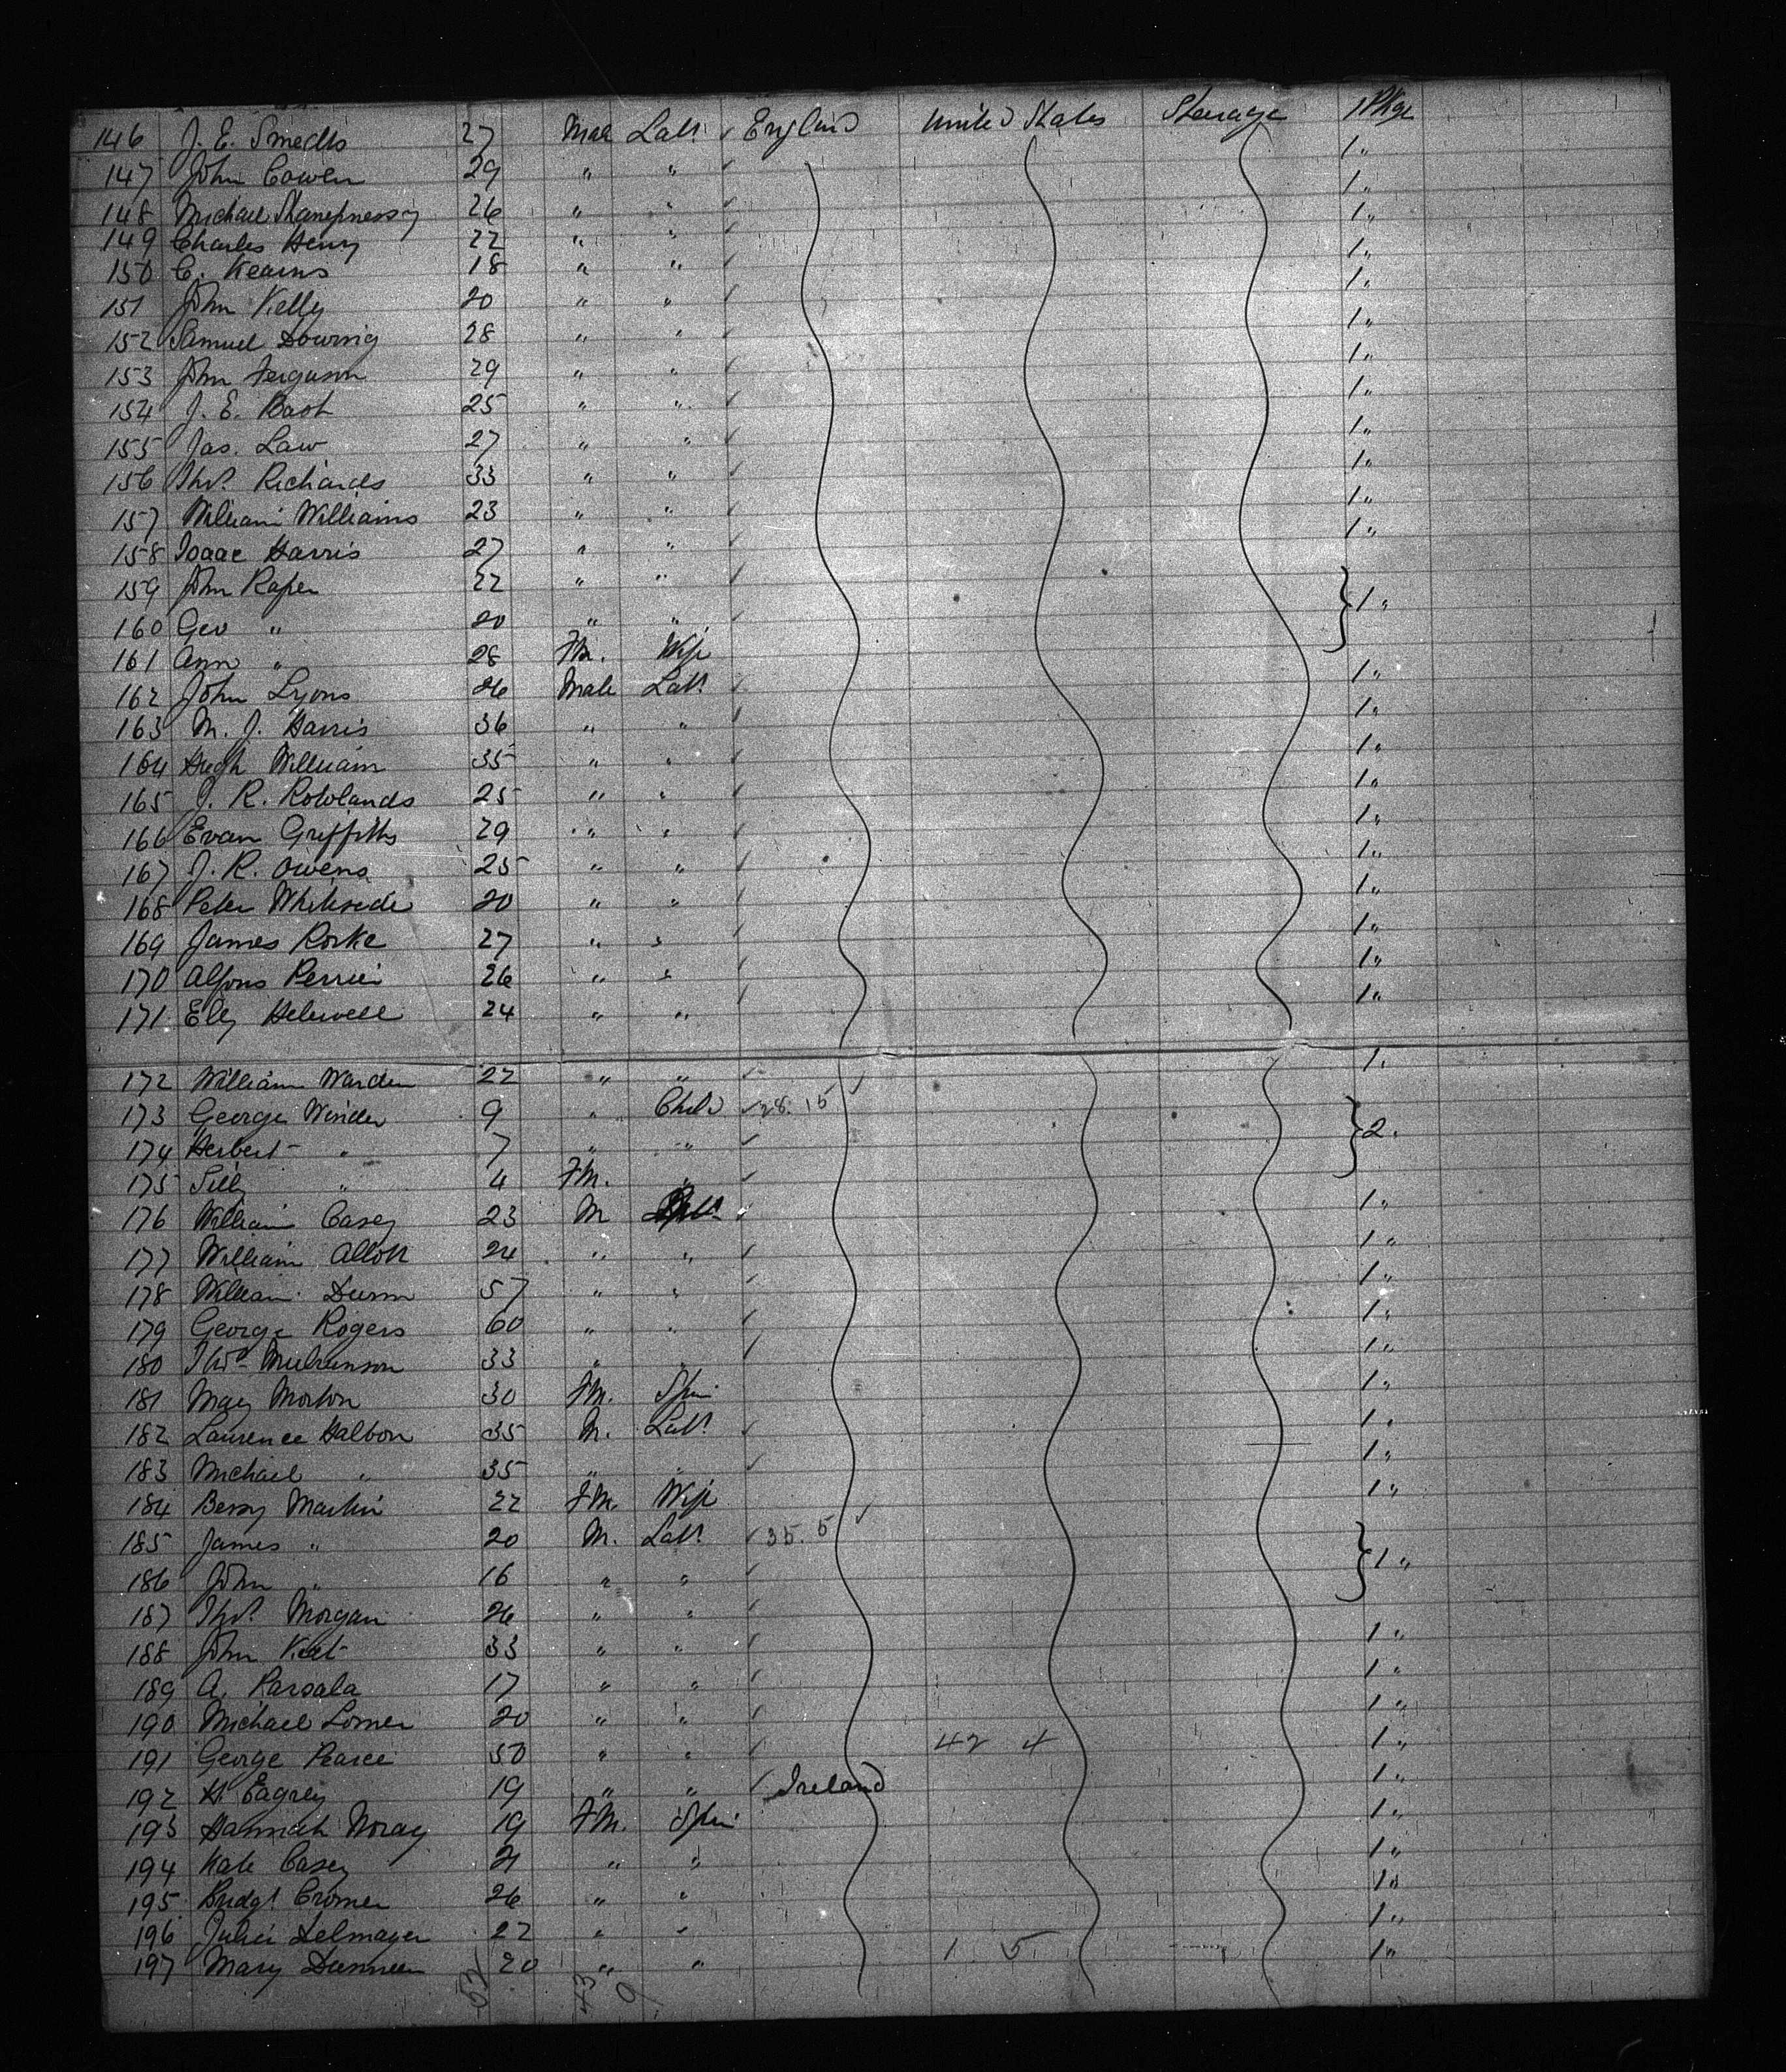 146 J. E. Smedts 27 Male Labr ✓ England United States Steerage 1 Pkge
147 John Cowen 29 " " ✓ 1 "
148 Michael 26 " " ✓ 1 "
149 Charles Henry 22 " " ✓ 1 "
150 C. Kearns 18 " " ✓ 1 "
151 John Kelly 20 " " ✓ 1 "
152 Samuel Dowing 28 " " ✓ 1 "
153 John Ferguson 29 " " ✓ 1 "
154 J. E. Bash 25 " " ✓ 1 "
155 Jas. Law 27 " " ✓ 1 "
156 Thos. Richards 33 " " ✓ 1 "
157 William Williams 23 " " ✓ 1 "
158 Isaac Harris 27 " " ✓ 1 "
159 John Raper 22 " " ✓
160 Geo " 20 " " ✓ } 1 "
161 Ann " 28 Fm. Wife
162 John Lyons 26 Male Labr ✓ 1 "
163 M. J. Harris 36 " " ✓ 1 "
164 Hugh William 35 " " ✓ 1 "
165 J. R. Rowlands 25 " " ✓ 1 "
166 Evan Griffiths 29 " " ✓ 1 "
167 J. R. Owens 25 " " ✓ 1 "
168 Peter Whiteside 20 " " ✓ 1 "
169 James Rorke 27 " " ✓ 1 "
170 Alfons Perrier 26 " " ✓ 1 "
171 Ely Helewell 24 " " ✓ 1 "
172 William Warden 22 " " ✓ 1 "
173 George Winder 9 " Child ✓ 28. 15 ✓
174 Herbert " 7 " " ✓ } 2 "
175 " 4 Fm. " ✓
176 William Casey 23 M Labr ✓ 1 "
177 William Allott 24 " " ✓ 1 "
178 William Dunn 57 " " ✓ 1 "
179 George Rogers 60 " " ✓ 1 "
180 Thos 33 " " ✓ 1 "
181 Mary Morton 30 Fm. Spin. 1 "
182 Laurence Halbon 35 M. Labr ✓ 1 "
183 Michael " 35 " " ✓ 1 "
184 Bessy Martin 22 Fm. Wife 1 "
185 James " 20 M. Labr ✓ 35. 5 ✓
186 John " 16 " " ✓ } 1 "
187 Thos. Morgan 26 " " ✓
188 John Keat 33 " " ✓ 1 "
189 A. Parsala 17 " " ✓ 1 "
190 Michael 20 " " ✓ 1 "
191 George Pearce 50 " " ✓ 42 4 1 "
192 H. Eagrey 19 " " ✓ Ireland 1 "
193 Hannah Noray 19 Fm. Spin. 1 "
194 Kate Casey 21 " " 1 "
195 Bridgt Cromer 26 " " 1 "
196 Julia Delmager 22 " " 1 "
197 Mary Dunneen 20 " " 1 5 1 "